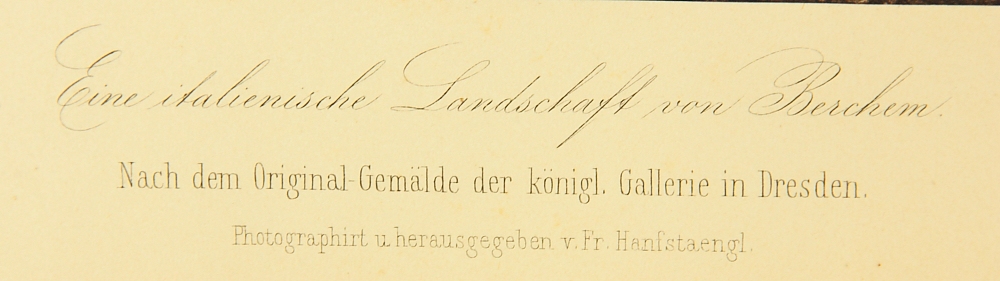 Eine italienische Landschaft von Berchem.
Nach dem Original-Gemälde der königl. Gallerie in Dresden.
Photographirt u. herausgegeben v. Fr. Hanfstaengl.